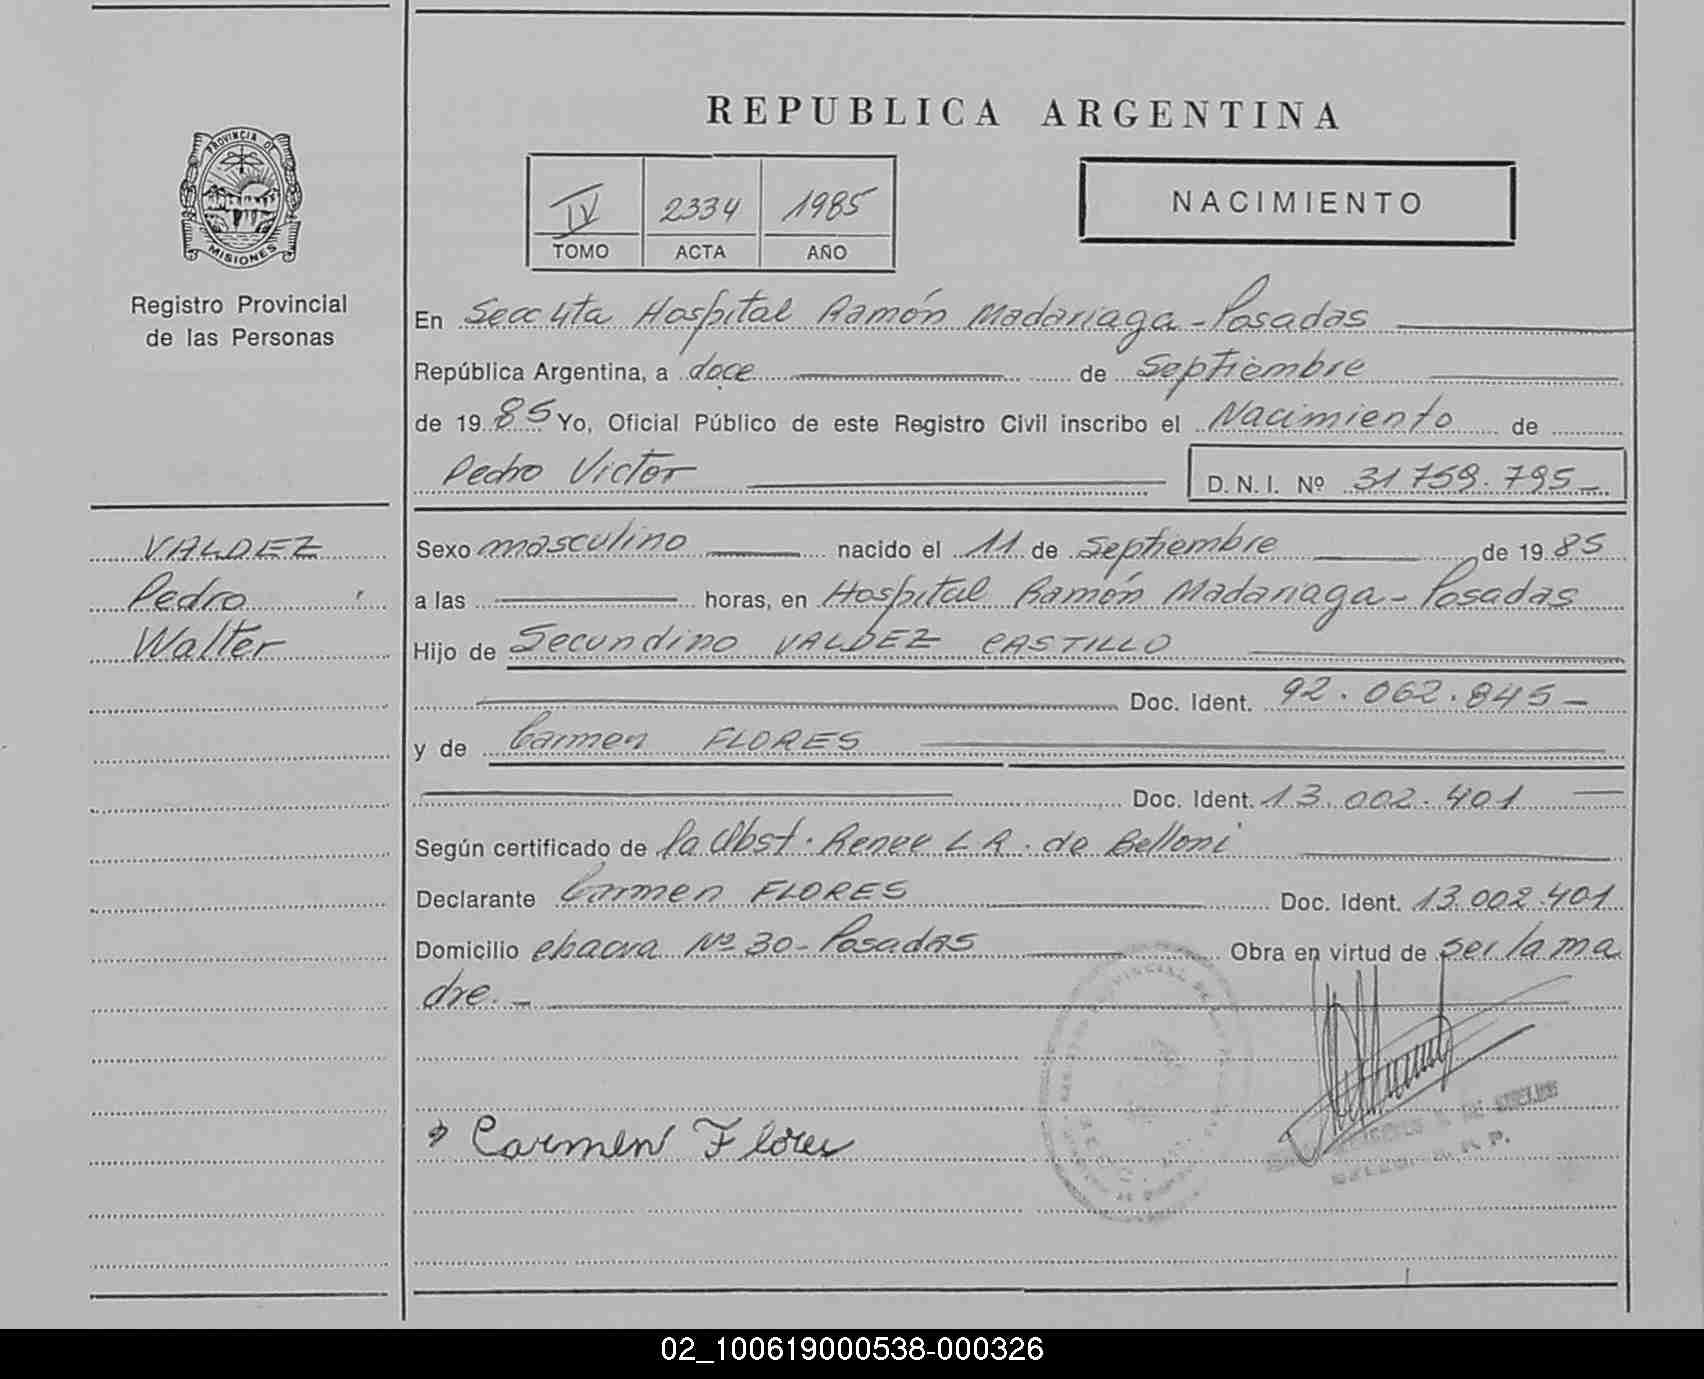 REPUBLICA ARGENTINA
PROVINCIA DE
MISIONES
Registro Provincial
de las Personas
IV 2334 1985
TOMO ACTA AÑO
NACIMIENTO
En Secc 4ta Hospital Ramón Madariaga - Posadas
República Argentina, a doce de Septiembre
de 1985 Yo, Oficial Público de este Registro Civil inscribo el Nacimiento de
Pedro Victor
D. N. I. Nº 31.759.795-
VALDEZ
Pedro
Walter
Sexo masculino nacido el 11 de Septiembre de 1985
a las horas, en Hospital Ramón Madariaga - Posadas
Hijo de Secundino VALDEZ CASTILLO
Doc. Ident. 92.062.845-
y de Carmen FLORES
Doc. Ident. 13.002.401
Según certificado de la Obst. Renee L R. de Belloni
Declarante Carmen FLORES Doc. Ident. 13.002.401
Domicilio Nº 30 - Posadas Obra en virtud de ser la ma
dre.-
Carmen Flores
02_100619000538-000326